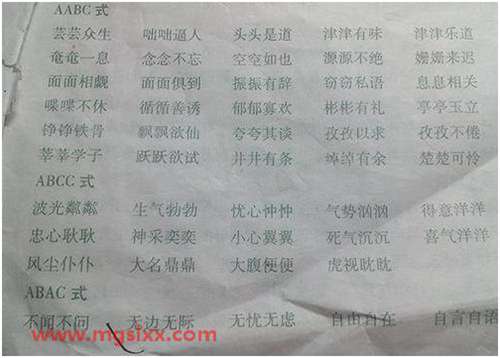 AABC 式
芸芸众生 咄咄逼人 头头是道 津津有味 津津乐道
奄奄一息 念念不忘 空空如也 源源不绝 姗姗来迟
面面相觑 面面俱到 振振有辞 窃窃私语 息息相关
喋喋不休 循循善诱 郁郁寡欢 彬彬有礼 亭亭玉立
铮铮铁骨 飘飘欲仙 夸夸其谈 孜孜以求 孜孜不倦
莘莘学子 跃跃欲试 井井有条 绰绰有余 楚楚可怜
ABCC 式
波光粼粼 生气勃勃 忧心忡忡 气势汹汹 得意洋洋
忠心耿耿 神采奕奕 小心翼翼 死气沉沉 喜气洋洋
风尘仆仆 大名鼎鼎 大腹便便 虎视眈眈
ABAC 式
不闻不问 无边无际 无忧无虑 自由自在 自言自语
www.mgsixx.com